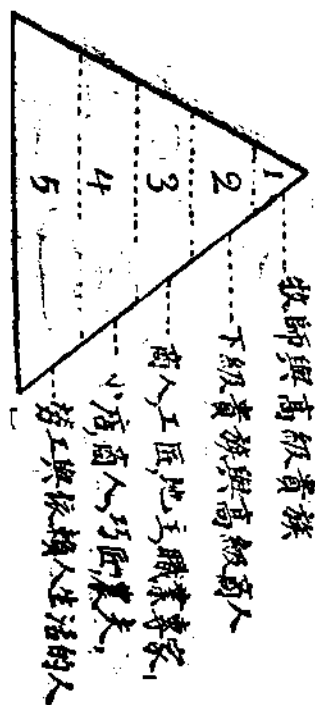 1 牧師與高級貴族
2 下級貴族與高級商人
3 商人,工匠,地主,職業專家,
4 小店,商人,巧匠,農夫,
5 工與依賴人生活的人